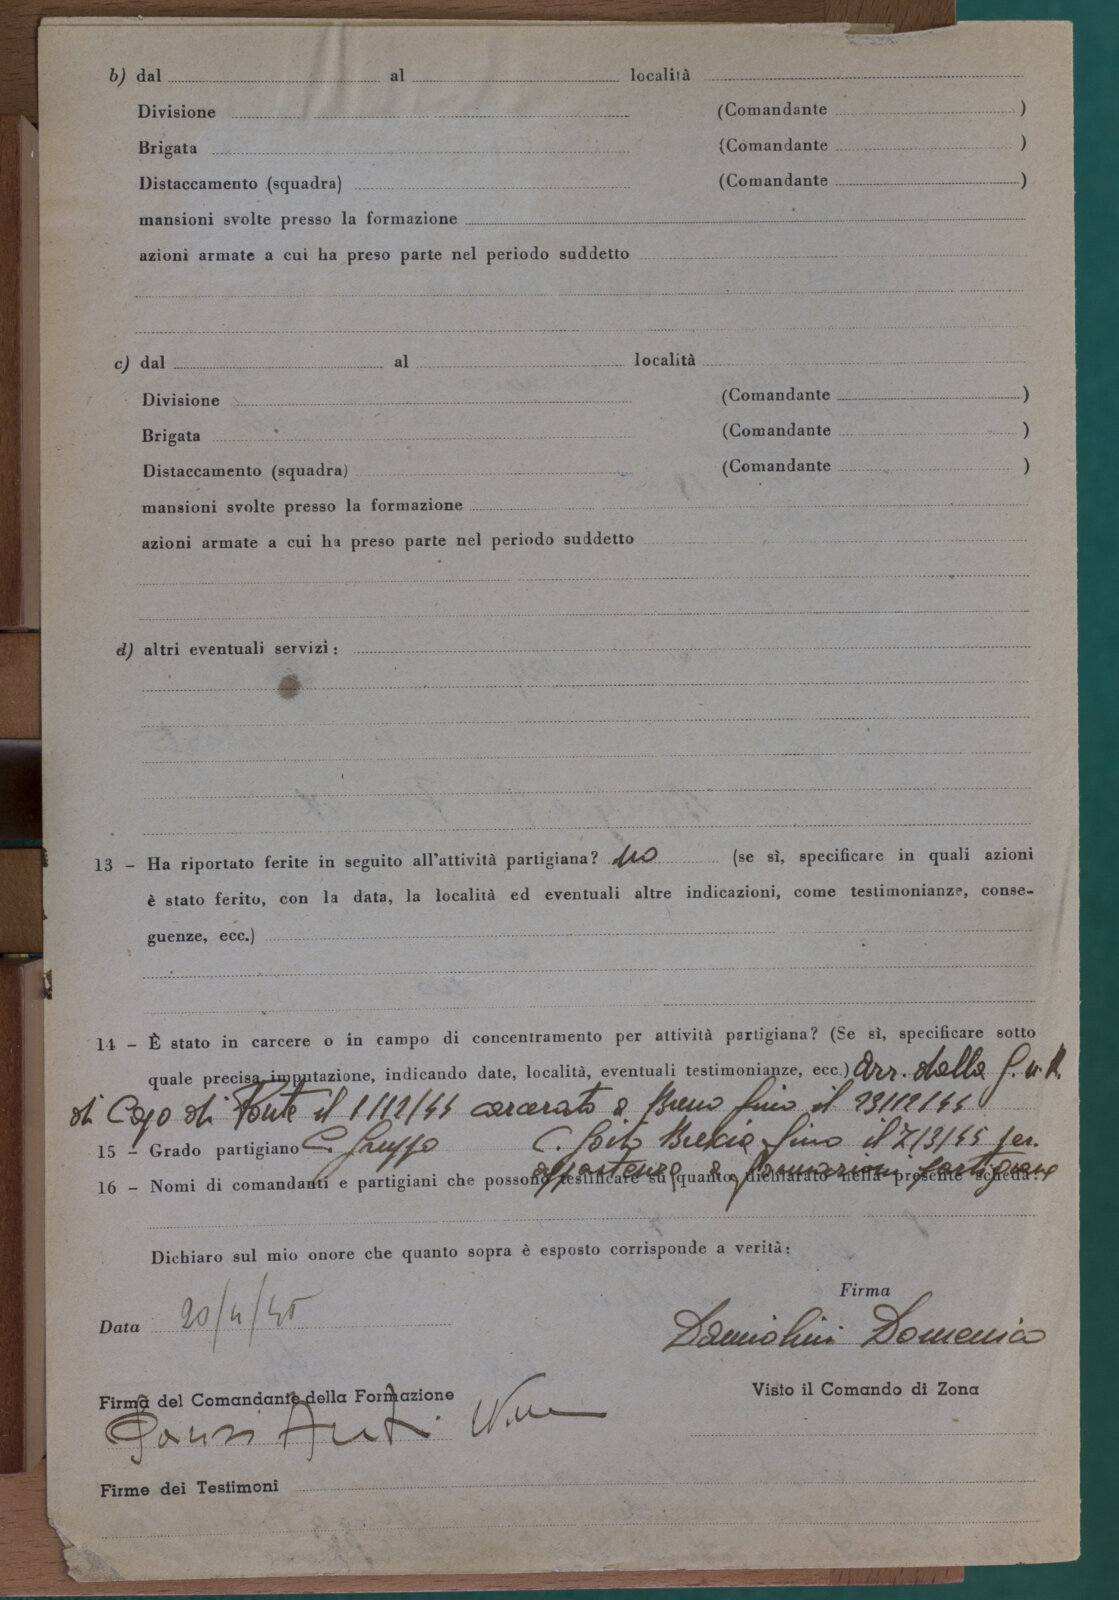 b) dal al località
Divisione (Comandante )
Brigata (Comandante )
Distaccamento (squadra) (Comandante )
mansioni svolte presso la formazione
azioni armate a cui ha preso parte nel periodo suddetto
c) dal al località
Divisione (Comandante )
Brigata (Comandante )
Distaccamento (squadra) (Comandante )
mansioni svolte presso la formazione
azioni armate a cui ha preso parte nel periodo suddetto
d) altri eventuali servizi:
13 – Ha riportato ferite in seguito all'attività partigiana? no (se sì, specificare in quali azioni
è stato ferito, con la data, la località ed eventuali altre indicazioni, come testimonianze, conse-
guenze, ecc.)
14 – È stato in carcere o in campo di concentramento per attività partigiana? (Se sì, specificare sotto
quale precisa imputazione, indicando date, località, eventuali testimonianze, ecc.) Arr. dalla G.N.R.
di Capo di Ponte il 1/12/44 carcerato a Breno fino il 23/12/44
15 – Grado partigiano C. Gruppo C. Goito Brescia fino il 7/3/45 per
appartenza a formazioni partigiane
16 – Nomi di comandanti e partigiani che possono testificare su quanto dichiarato nella presente scheda:
Dichiaro sul mio onore che quanto sopra è esposto corrisponde a verità:
Firma
Data 20/4/45
Damiolini Domenico
Firma del Comandante della Formazione Visto il Comando di Zona
Firme dei Testimoni